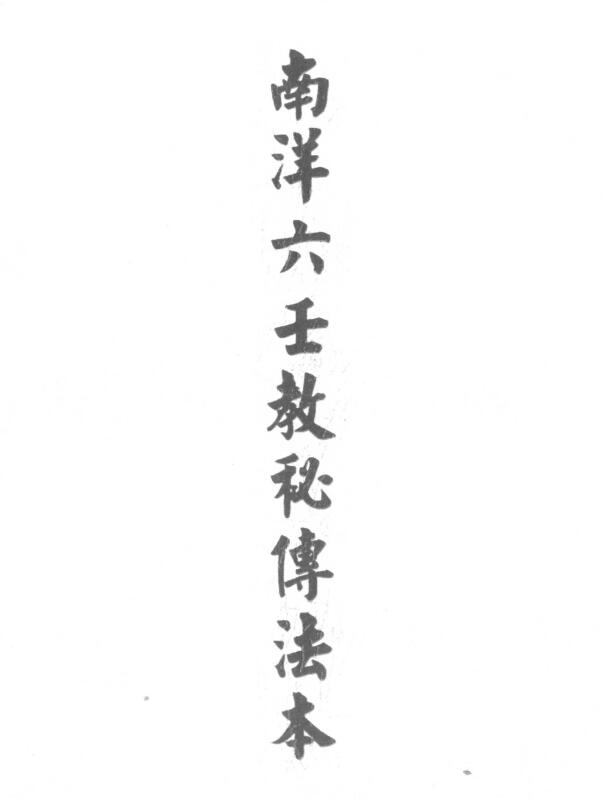 南洋六壬教秘傳法本